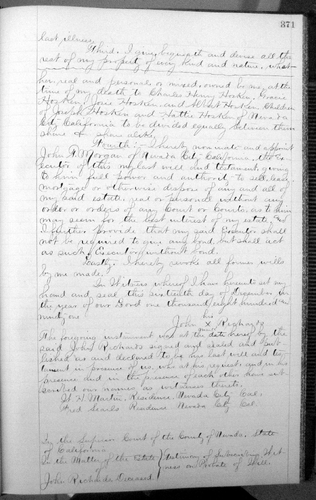 371
last illness.
Third: I give, bequeath and devise all the
rest of my property of every kind and nature, whether
real and personal or mixed, owned by me, at the
time of my death, to Charles Henry Hosken, Bessie
Hosken, Jane Hosken and West Hosken children
of Josiah Hosken and Hattie Hosken of Nevada
City, California, to be divided equally between them
share & share alike.
Fourth: I hereby nominate and appoint
John T. Morgan of Nevada City, California, the Ex-
ecutor of this my last will and testament, giving
to him full power and authority to sell, lease
mortgage or otherwise dispose of any and all of
my said estate, real or personal without any
order or orders of any Court or Courts, as to him
may seem for the best interest of my estate, and
I further provide that my said Executor shall
not be required to give any bond, but shall act
as such Executor without bond.
Lastly: I hereby revoke all former wills
by me made.
In Witness whereof I have hereunto set my
hand and seal, this sixteenth day of December in
the year of our Lord one thousand, eight hundred and
ninety one
his
John X Richards
The foregoing instrument was at the date hereof by the
said John Richards signed and sealed and pub-
lished as and declared to be his last will and tes-
tament in presence of us, who at his request, and in his
presence and in the presence of each other, have sub-
scribed our names as witnesses thereto.
Martin, Residence, Nevada City Cal.
Fred Searls Residence Nevada City Cal.
In the Superior Court of the County of Nevada, State
of California
In the Matter of the Estate } Testimony of Subscribing Wit-
of } ness on Probate of Will.
John Richards Deceased